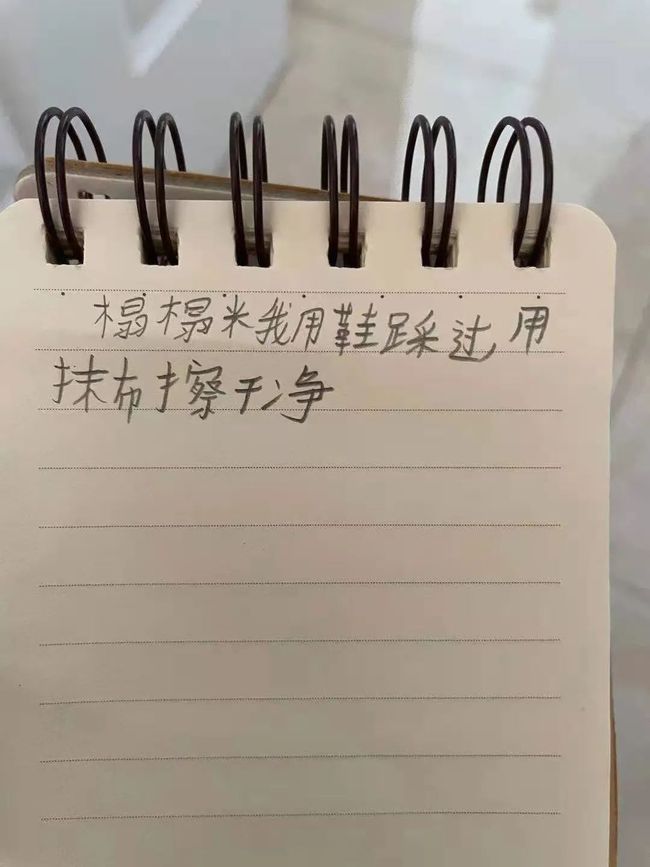 榻榻米我用鞋踩过,用
抹布擦干净